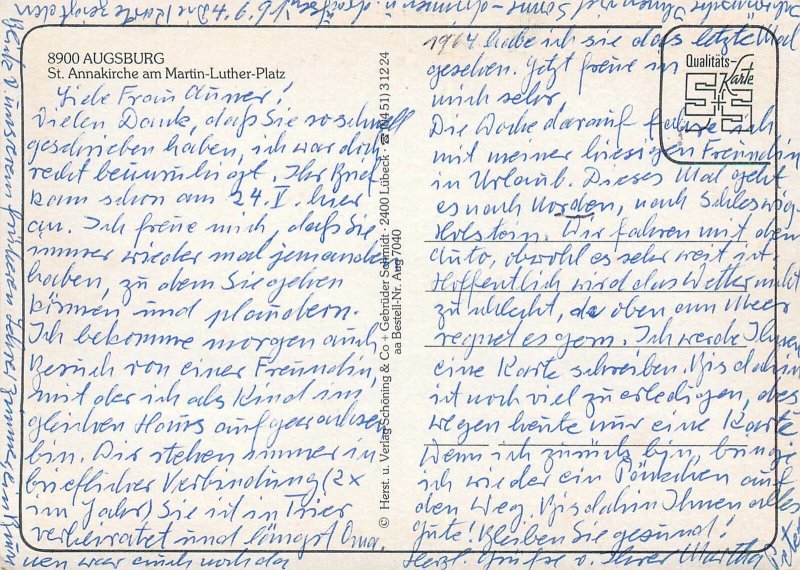 8900 AUGSBURG
St. Annakirche am Martin-Luther-Platz
Liebe Frau Auner!
Vielen Dank, daß Sie so schnell
geschrieben haben, ich war doch
recht beunruhigt. Ihr Brief
kam schon am 24.V. hier
an. Ich freue mich, daß Sie
immer wieder mal jemanden
haben, zu dem Sie gehen
können und plaudern.
Ich bekomme morgen auch
Besuch von einer Freundin,
mit der ich als Kind im
gleichen Haus aufgewachsen
bin. Wir stehen immer in
brieflicher Verbindung (2x
im Jahr) Sie ist in Trier
verheiratet und längst Oma.
1964 habe ich sie das letzte Mal
gesehen. Jetzt freue ich
mich sehr.
Die Woche darauf fahre ich
mit meiner hiesigen Freundin
in Urlaub. Dieses Mal geht
es nach Norden, nach Schleswig-
Holstein. Wir fahren mit dem
Auto, obwohl es sehr weit ist.
Hoffentlich wird das Wetter nicht
zu schlecht, da oben am Meer
regnet es gern. Ich werde Ihnen
eine Karte schreiben. Bis dahin
ist noch viel zu erledigen, des
wegen heute nur eine Karte
Wenn ich zurück bin, bringe
ich wieder ein Päckchen auf
den Weg. Bis dahin Ihnen alles
Gute! Bleiben Sie gesund!
Herzl. Grüße v. Ihrer Martha
© Herst. u. Verlag Schöning & Co + Gebrüder Schmidt · 2400 Lübeck ☎ (04 51) 3 12 24
aa Bestell-Nr. Aug 7040
Qualitäts-
Karte
S+S
in unserem früheren